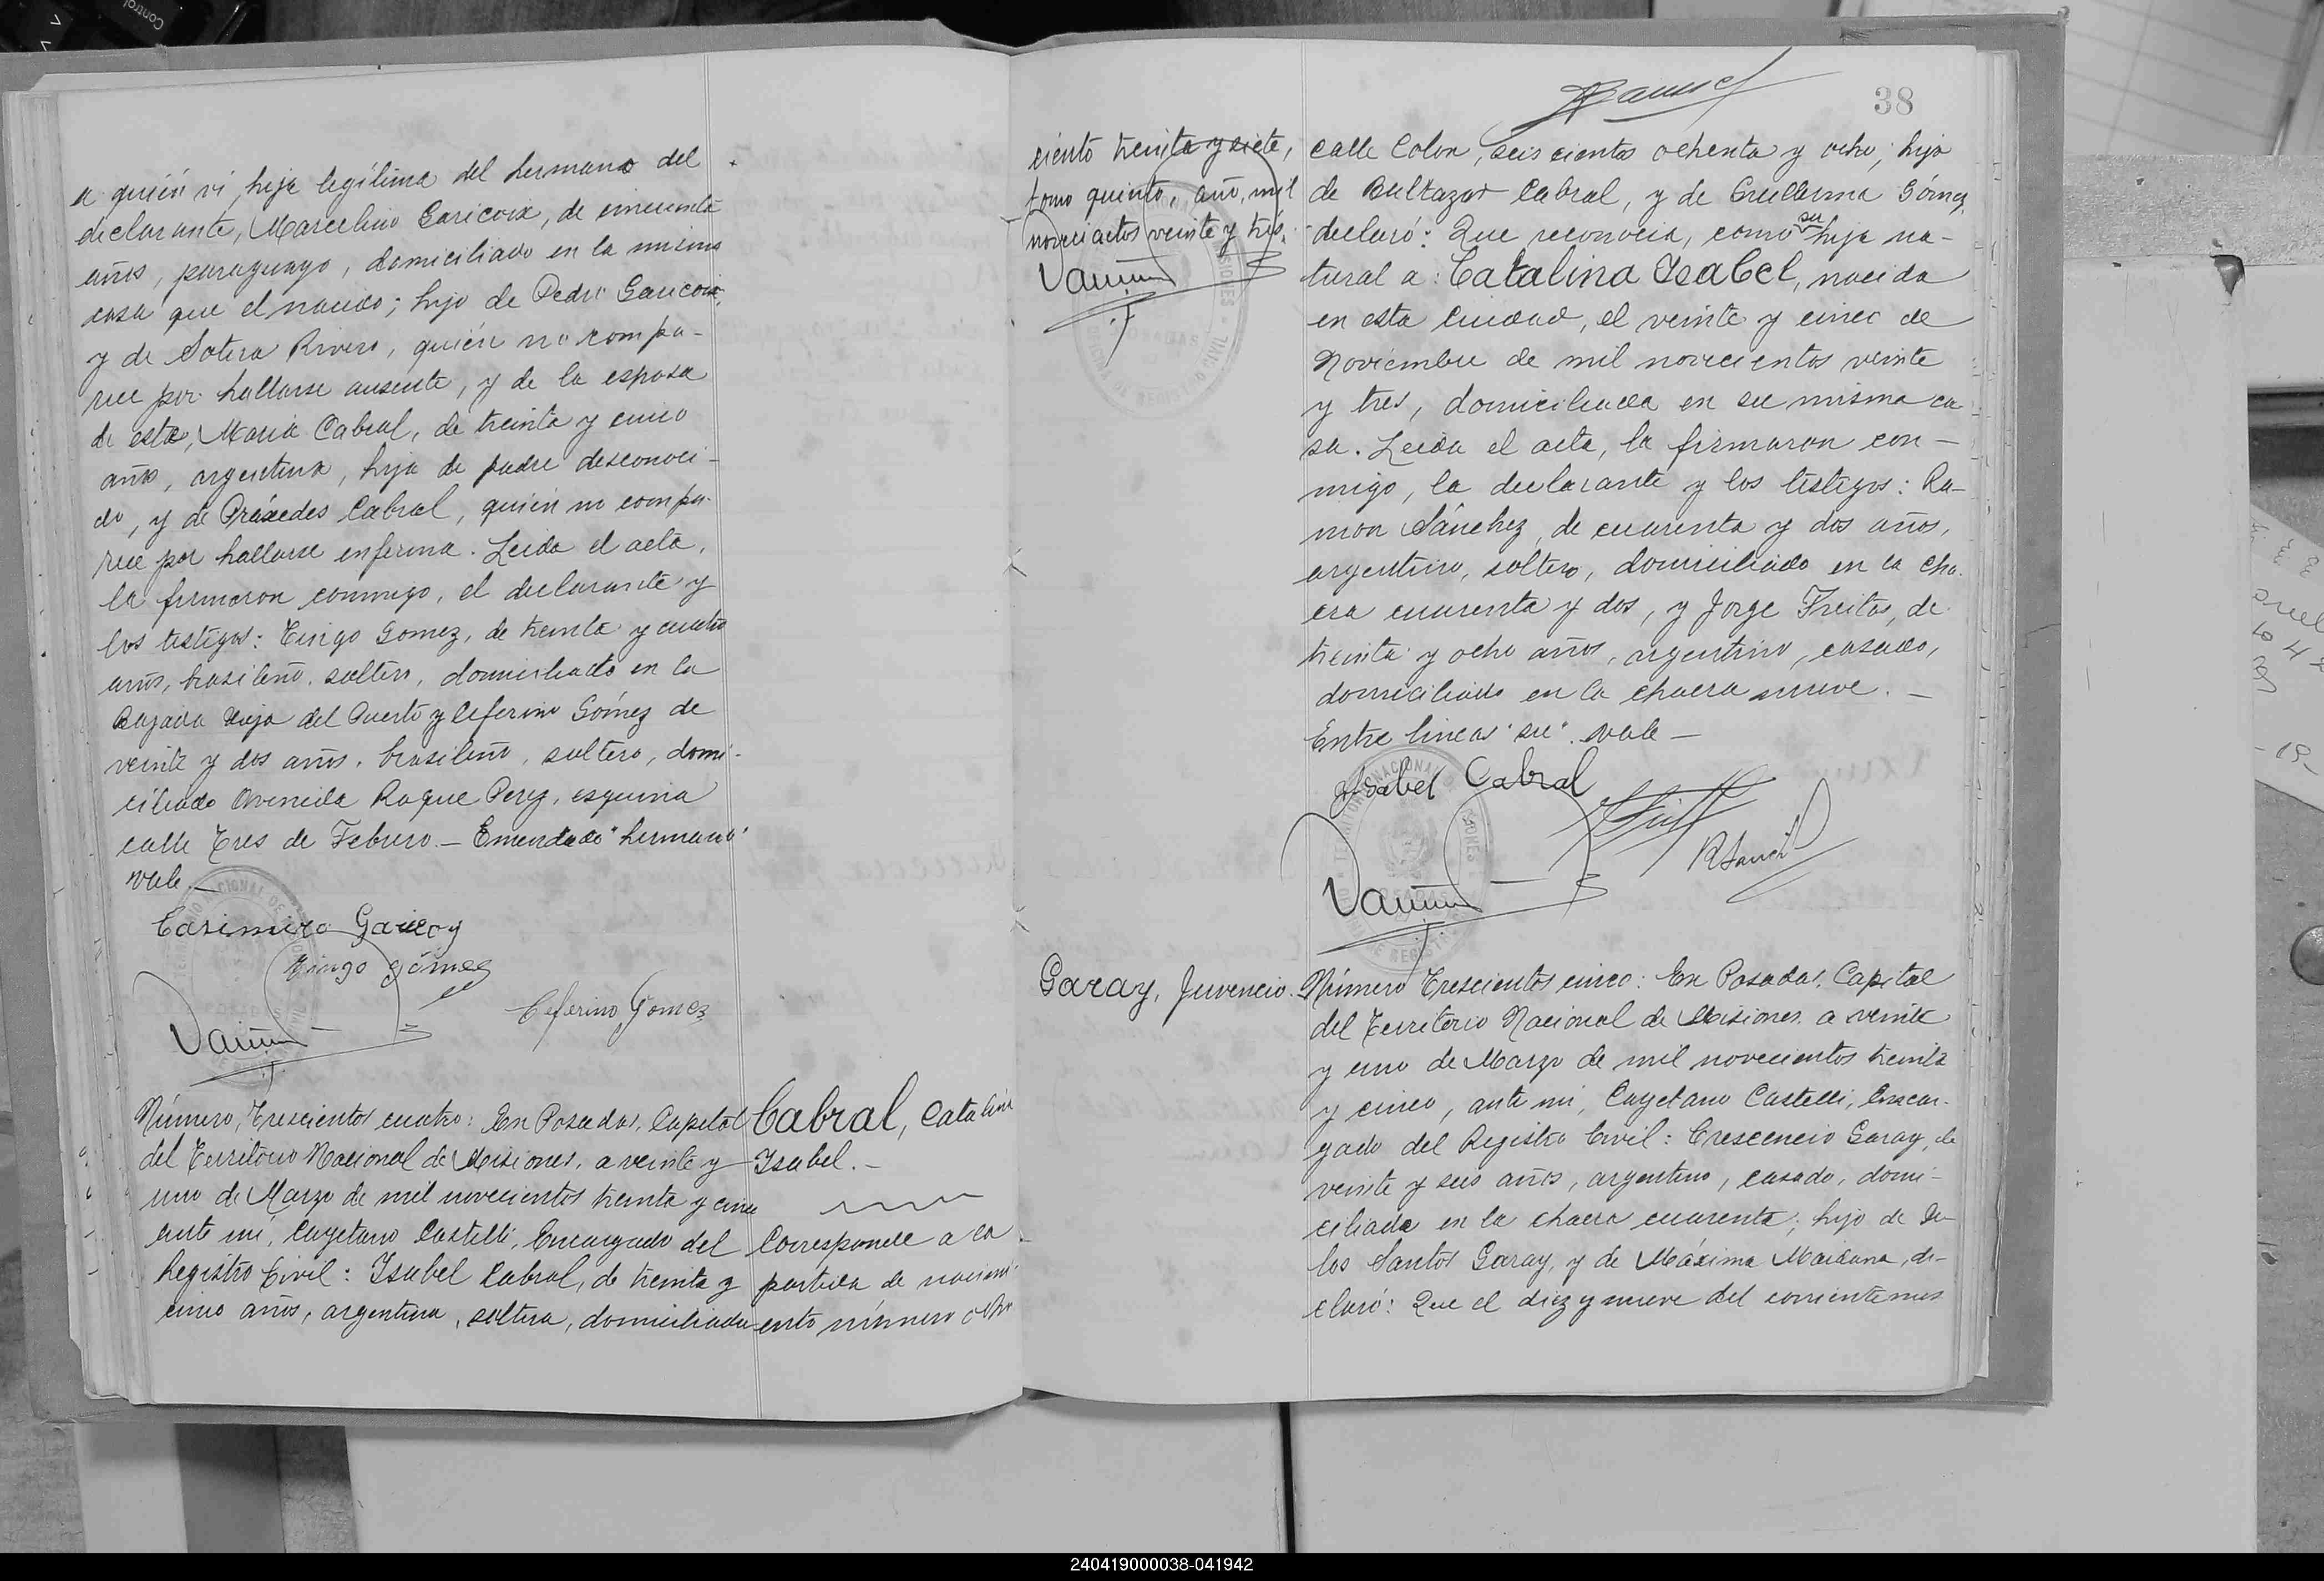 a quién ví, hija legítima del hermano del
declarante, Marcelino Garicoix, de cincuenta
años, paraguayo, domiciliado en la misma
casa que el nacido; hijo de Pedro Garicoix,
y de Sotera Rivero, quién no compa-
rece por hallarse ausente, y de la esposa
de este, María Cabral, de treinta y cinco
años, argentina, hija de padre desconoci-
do, y de Práxedes Cabral, quién no compa-
rece por hallarse enferma. Leida el acta,
la firmaron conmigo, el declarante y
los testigos: Tingo Gomez, de treinta y cuatro
años, brasileño, soltero, domiciliado en la
Bajada Vieja del Puerto y Ceferino Gómez de
veinte y dos años, brasileño, soltero, domi-
ciliado Avenida Roque Perez, esquina
calle Tres de Febrero.— Emendado "hermano"
vale.—
Casimiro Garicoy
Tingo Gómez
Ceferino Gomez
Número, Trescientos cuatro: En Posadas, Capital
del Territorio Nacional de Misiones, a veinte y
uno de Marzo de mil novecientos treinta y cinco
ante mí, Cayetano Castelli, Encargado del
Registro Civil: Isabel Cabral, de treinta y
cinco años, argentina, soltera, domiciliada
Cabral, Catalina
Isabel.—
Corresponde a la
partida de nacimi-
ento número ocho
ciento treinta y siete,
tomo quinto, año, mil
novecientos veinte y tres.
38
calle Colon, seis cientos ochenta y ocho; hija
de Baltazar Cabral, y de Guillerma Gómez,
declaró: Que reconocia, como su hija na-
tural a: Catalina Isabel, nacida
en esta Ciudad, el veinte y cinco de
Noviembre de mil novecientos veinte
y tres, domiciliada en su misma ca-
sa. Leida el acta, la firmaron con-
migo, la declarante y los testigos: Ra-
mon Sánchez, de cuarenta y dos años,
argentino, soltero, domiciliado en la cha-
cra cuarenta y dos, y Jorge Freitas, de
treinta y ocho años, argentino, casado,
domiciliado en la chacra nueve.—
Entre lineas "su". vale—
Isabel Cabral
Garay, Juvencio.
Número Trescientos cinco: En Posadas, Capital
del Territorio Nacional de Misiones, a veinte
y uno de Marzo de mil novecientos treinta
y cinco, ante mi, Cayetano Castelli, Encar-
gado del Registro Civil: Crescencio Garay, de
veinte y seis años, argentino, casado, domi-
ciliado en la chacra cuarenta; hijo de De
los Santos Garay, y de Máxima Maidana, de-
claró: Que el diez y nueve del corriente mes
240419000038-041942